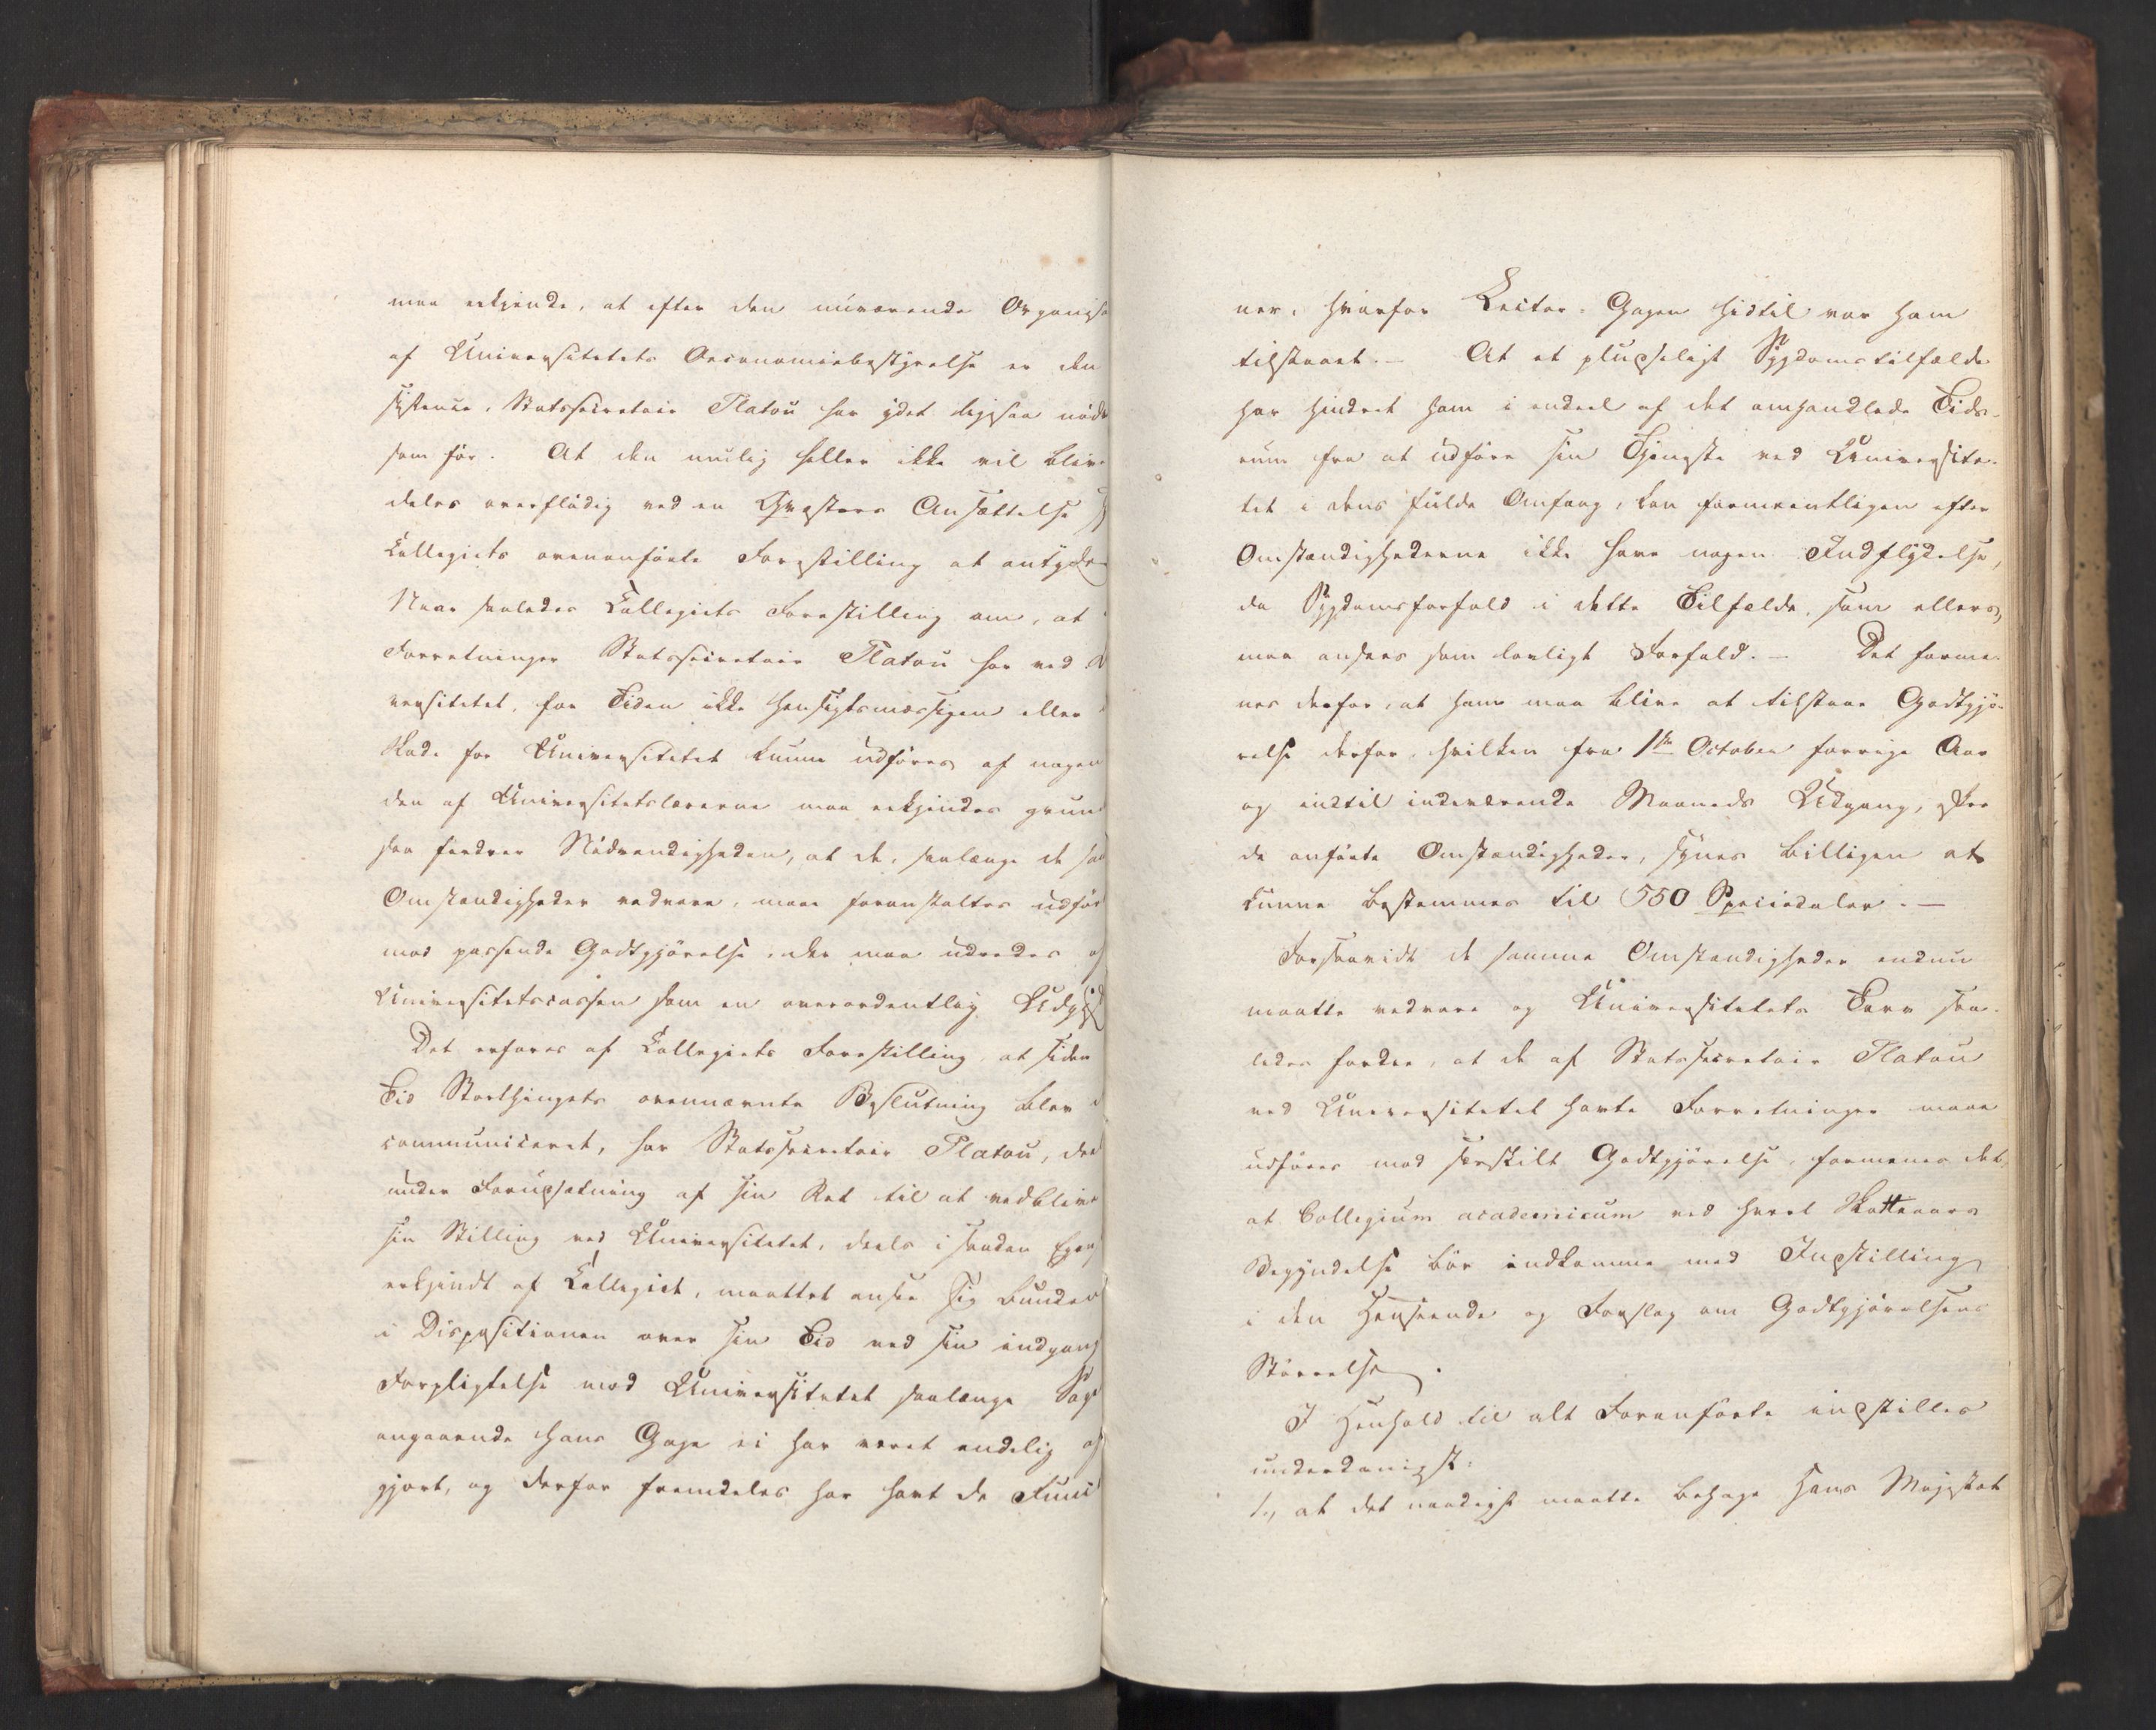 maa erkjende, at efter den nuværende Organisa
af Universitetets Oeconomiebestyrelse er den
sistence, Statssecretair Platou har ydet ligesaa nødv
som før. At den mulig heller ikke vil blive
deles overflødig ved en Qvæstors Ansættelse
Collegiets ovenanførte Forestilling at antyde
Naar saaledes Collegiets Forestilling om, at
Forretninger Statssecretair Platou har ved
versitetet, for Tiden ikke hensigtsmæssigen eller
Skade for Universitetet kunne udføres af nogen
den af Universitetslærerne maa erkjendes grund
saa fordrer Nødvendigheden, at de, saalænge de saa
Omstændigheder vedvare, maae foranstaltes udfør
mod passende Godtgjørelse, der maa udredes af
Universitetscassen som en overordentlig Udgift
Det erfares af Collegiets Forestilling, at siden
Tid Storthingets ovennævnte Beslutning blev
communiceret, har Statssecretair Platou, der
under Forudsætning af sin Ret til at vedblive
sin Stilling ved Universitetet, deels i saadan Egen
erkjendt af Collegiet, maattet ansee sig bunden
i Dispositionen over sin Tid ved sin indgang
Forpligtelse mod Universitetet saalænge Sag
angaaende hans Gage ei har været endelig af
gjort, og derfor fremdeles har havt de Func
ner, hvorfor Lector-Gagen hidtil var ham
tilstaaet.— At et pludseligt Sygdomstilfælde
har hindret ham i endeel af det omhandlede Tids-
rum fra at udføre sin Tjeneste ved Universite-
tet i dens fulde Omfang, kan formeentligen efter
Omstændighederne ikke have nogen Indflydelse,
da Sygdomsforfald i dette Tilfælde, som ellers,
maa ansees som lovligt Forfald.— Det forme-
nes derfor, at ham maa blive at tilstaae Godtgjø-
relse derfor, hvilken fra 1ste October forrige Aar
og indtil indeværende Maaneds Udgang, efter
de anførte Omstændigheder, synes billigen at
kunne bestemmes til 550 Speciedaler.—
Forsaavidt de samme Omstændigheder endnu
maatte vedvare og Universitetets Tarv saa-
ledes fordre, at de af Statssecretair Platou
ved Universitetet havte Forretninger maae
udføres mod særskilt Godtgjørelse, formenes det,
at Collegium academicum ved hvert Skatteaars
Begyndelse bør indkomme med Indstilling
i den Henseende og Forslag om Godtgjørelsens
Størrelse.
I Henhold til alt Foranførte indstilles
underdanigst:
1., at det naadigst maatte behage Hans Majestæt